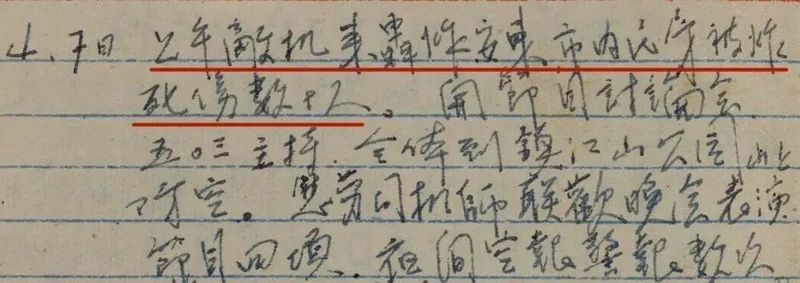 4.7日 上午敵机来轟炸安東市内民房被炸
死傷数十人。開節目討論会.
五〇三主持.全体到鎮江山公园山上
防空。慰劳司机師联歡晚会表演
節目四項.夜間空襲警報数次